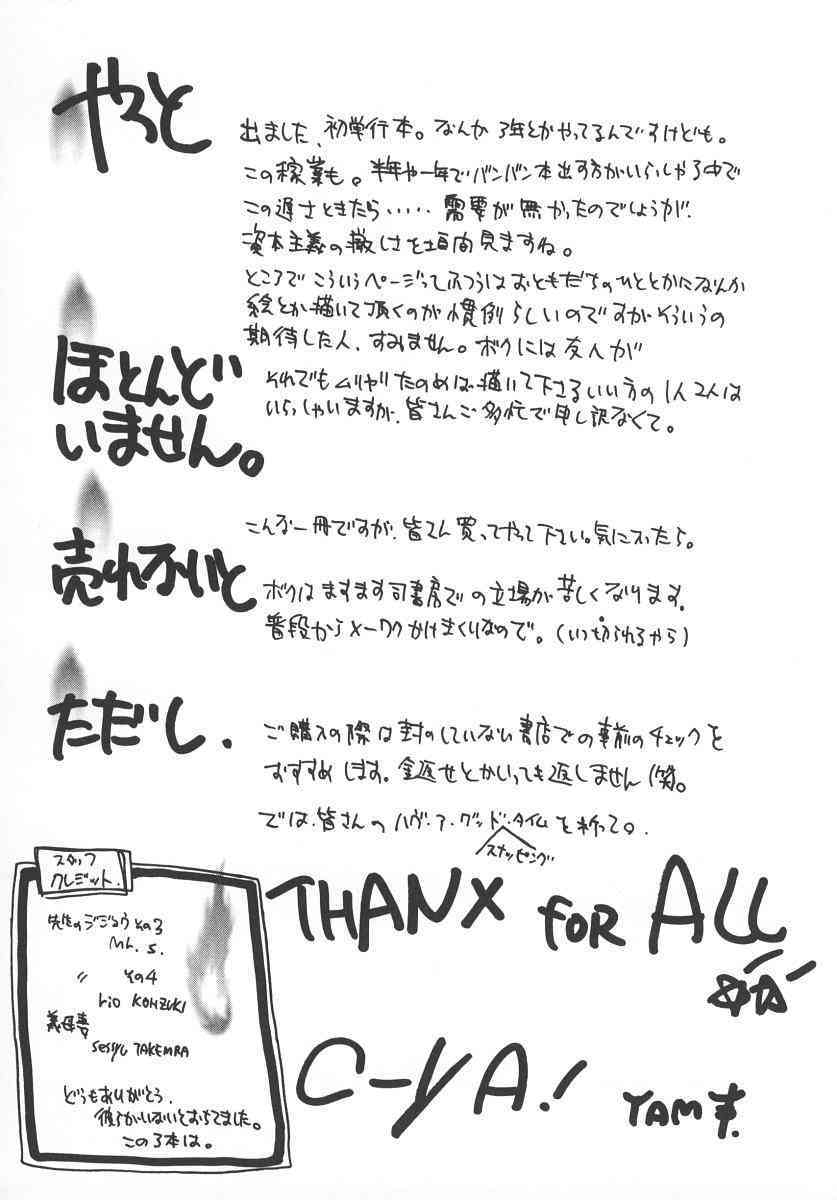 やっと
出ました、初単行本。なんか3年とかやってるんですけども。
この稼業も。半年や一年でバンバン本出す方がいらっしゃる中で
この遅さときたら・・・・・需要が無かったのでしょうが、
資本主義の厳しさを垣間見ますね。
ところでこういうページってふつうはおともだちのひととかになんか
絵とか描いて頂くのが慣例らしいのですがそういうの
期待した人、すみません。ボクには友人が
ほとんど
いません。
それでもムリヤリたのめば描いて下さるいい方の1人2人は
いらっしゃいますが、皆さんご多忙で申し訳なくて。
こんな一冊ですが、皆さん買ってやって下さい。気に入ったら。
売れないと
ボクはますます司書房での立場が苦しくなります。
普段からメーワクかけまくりなので。(いつ切られるやら)
ただし、
ご購入の際は封のしていない書店での事前のチェックを
おすすめします。金返せとかいっても返しません(笑。
では、皆さんのハヴ・ア・グッド・タイムを祈って。
スナッピング
THANX FOR ALL
C-YA!
YAM
スタッフ
クレジット.
先生のジジョウ その3
Mr. S.
〃 その4
rio KOHZUKI
義母
sessyu TAKEMRA
どうもありがとう.
彼らがいないとおちてました。
この3本は。